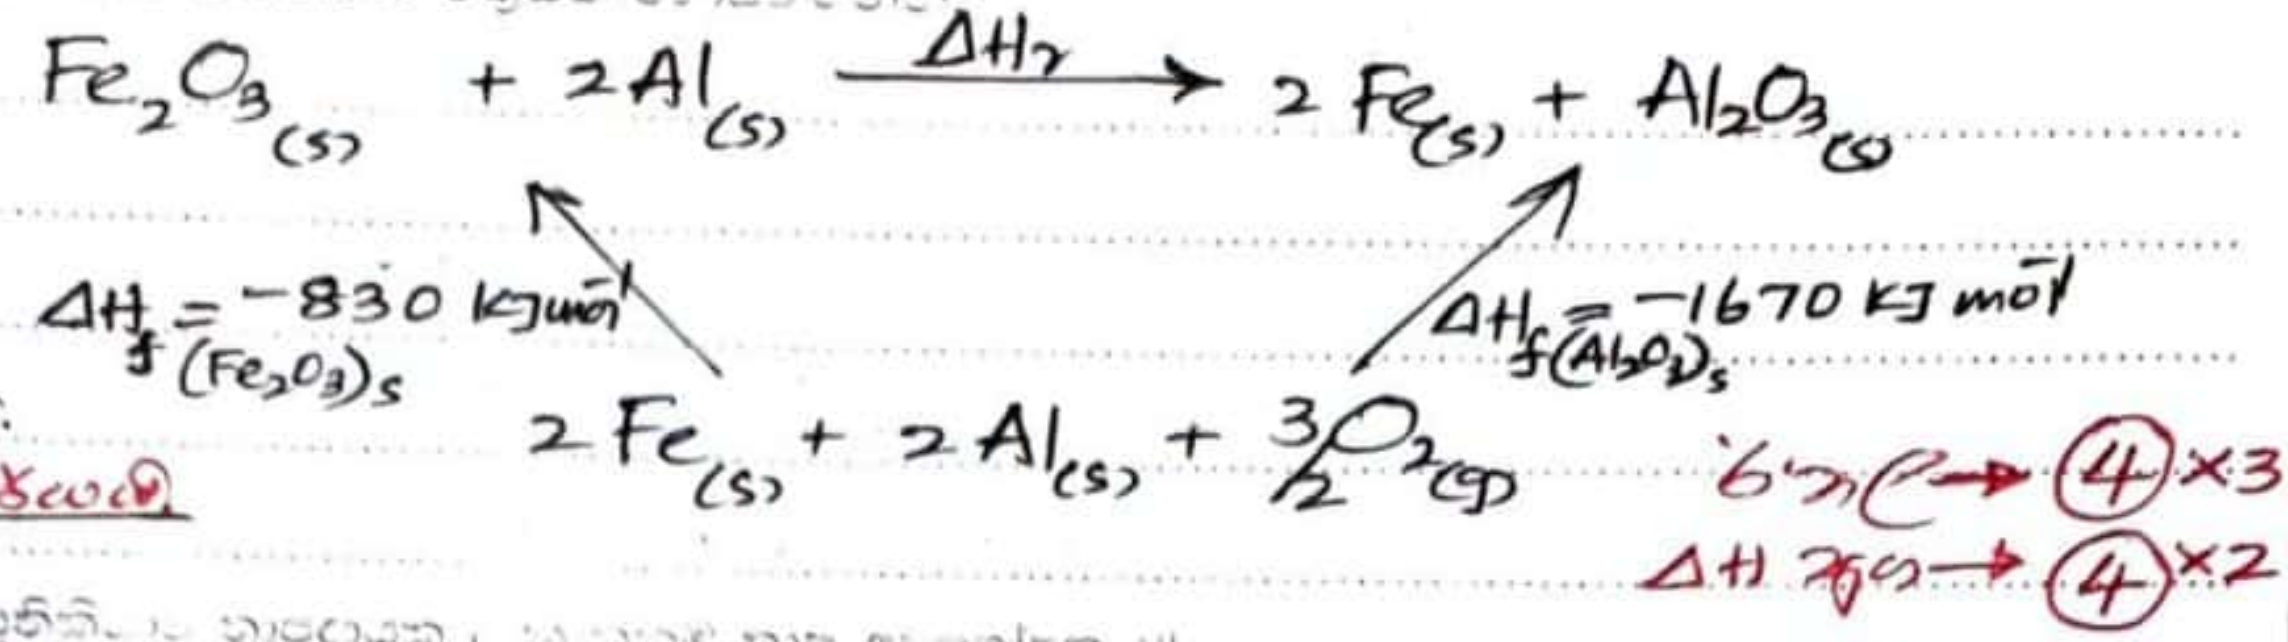 Fe₂O₃(s) + 2Al(s) ΔHr → 2Fe(s) + Al₂O₃(s)
ΔHf (Fe₂O₃)s = -830 kJ mol⁻¹
ΔHf(Al₂O₃)s = -1670 kJ mol⁻¹
2Fe(s) + 2Al(s) + 3/2O₂(g)
→ ④ × 3
ΔH → ④ × 2